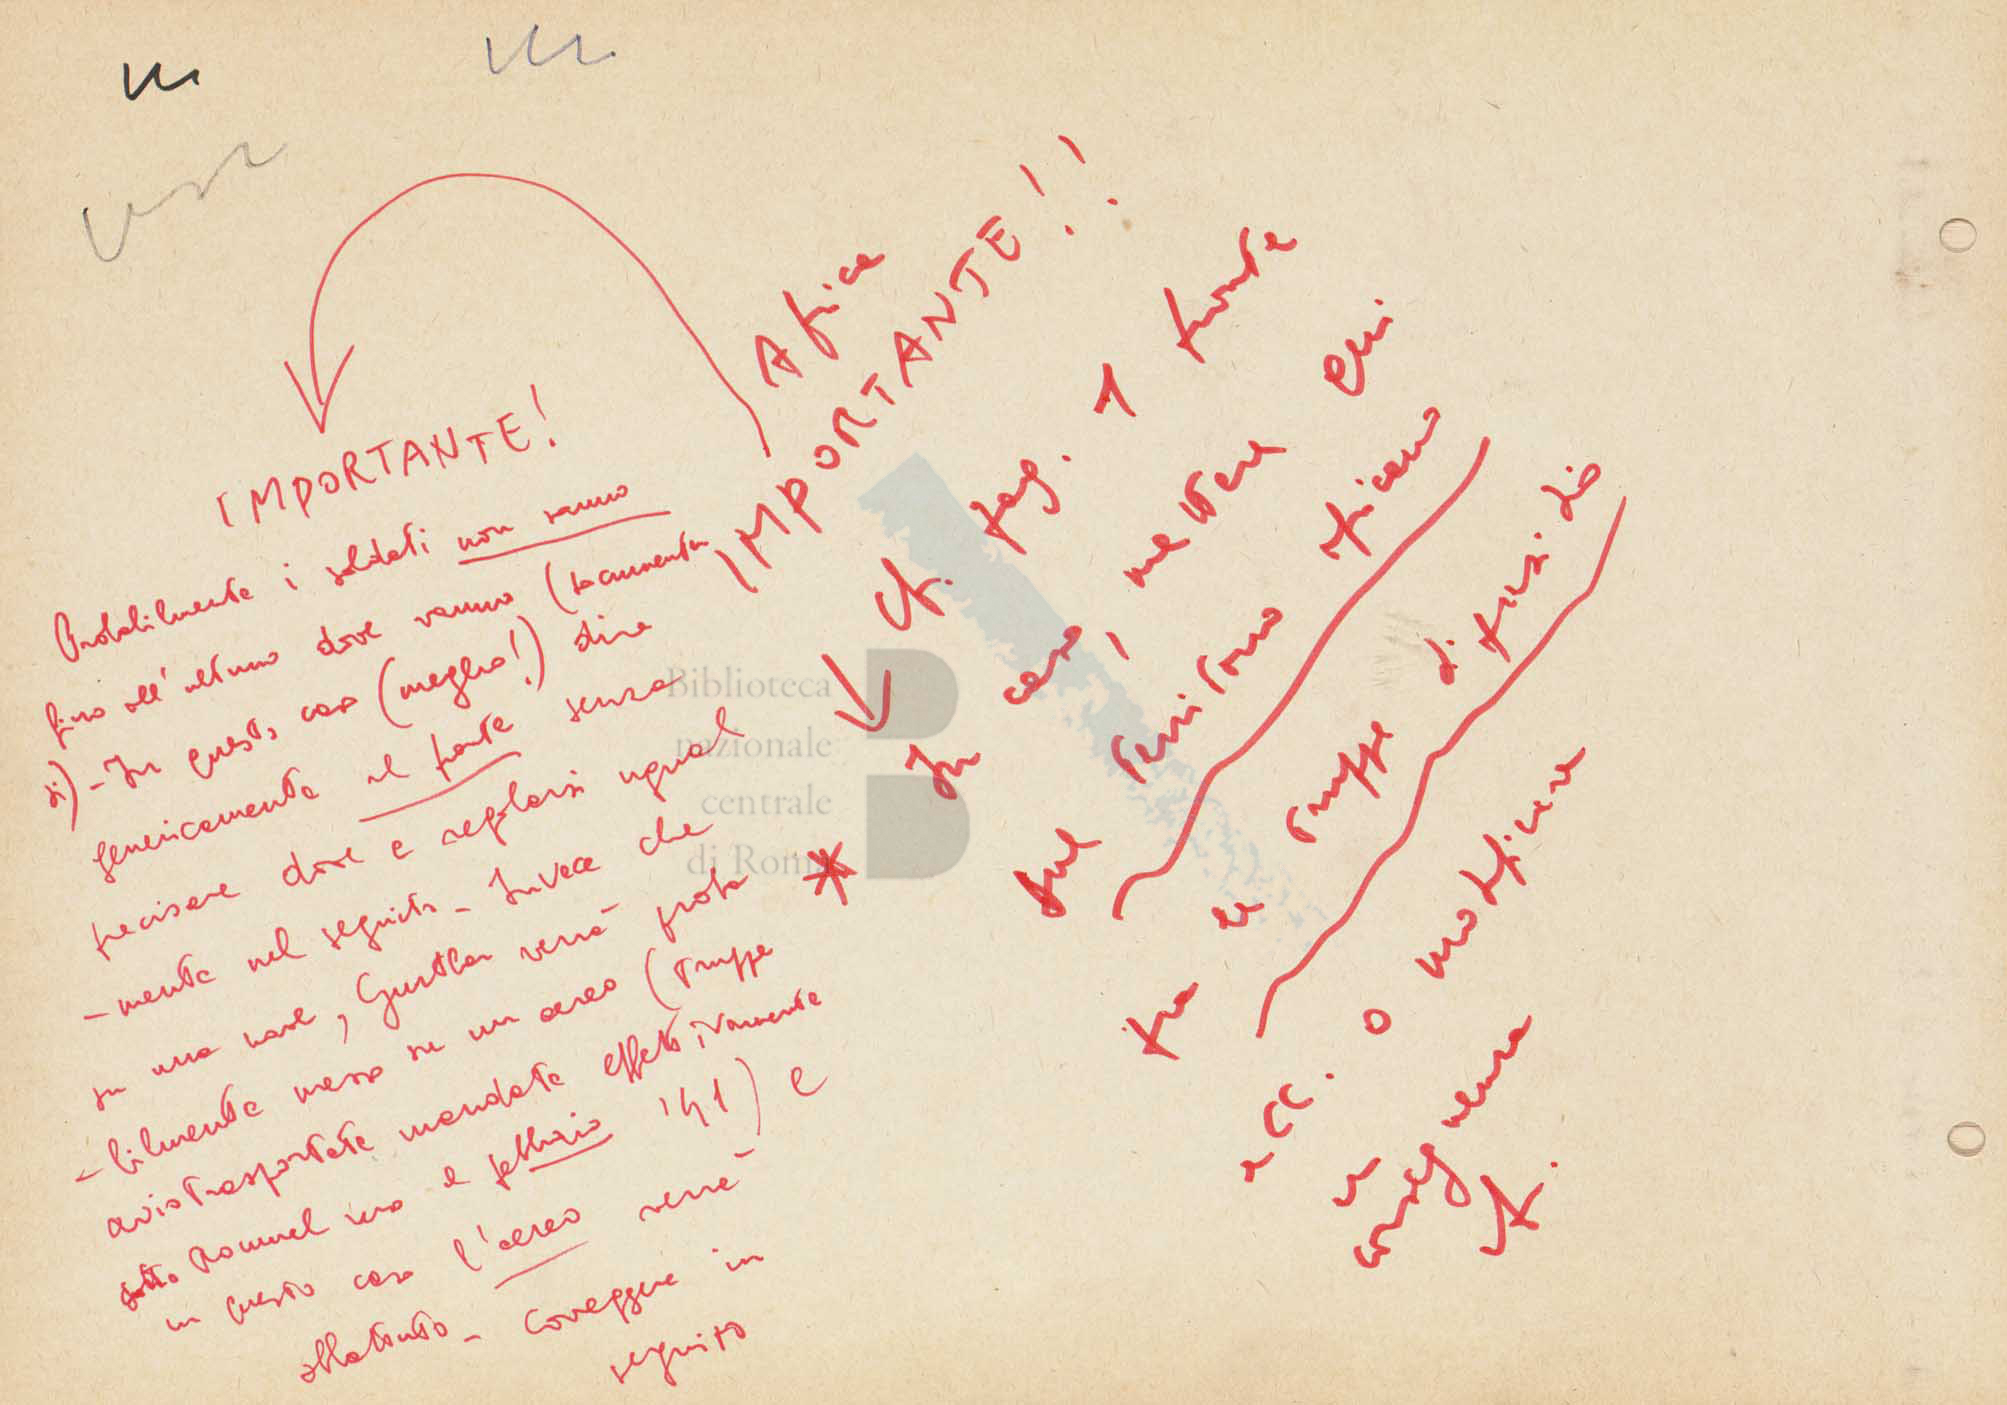 IMPORTANTE!
Probabilmente i soldati non sanno
fino all'ultimo dove vanno (documentar
si) - In questo caso (meglio!) dire
genericamente al fronte senza
precisare dove e regolarsi ugual
- mente nel seguito - Invece che
su una nave, Gunther verrà proba
- bilmente messo su un aereo (truppe
aviotrasportate mandate effettivamente
sotto Rommel verso il febbraio '41) e
in questo caso l'aereo verrà
abbattuto - Correggere in
seguito
Africa
IMPORTANTE!!
Cfr. pag. 1 fronte
* In caso, mettere qui
sul territorio africano
tra le truppe di
ecc. o modificare
di
conseguenza
Biblioteca
nazionale
centrale
di Roma
B